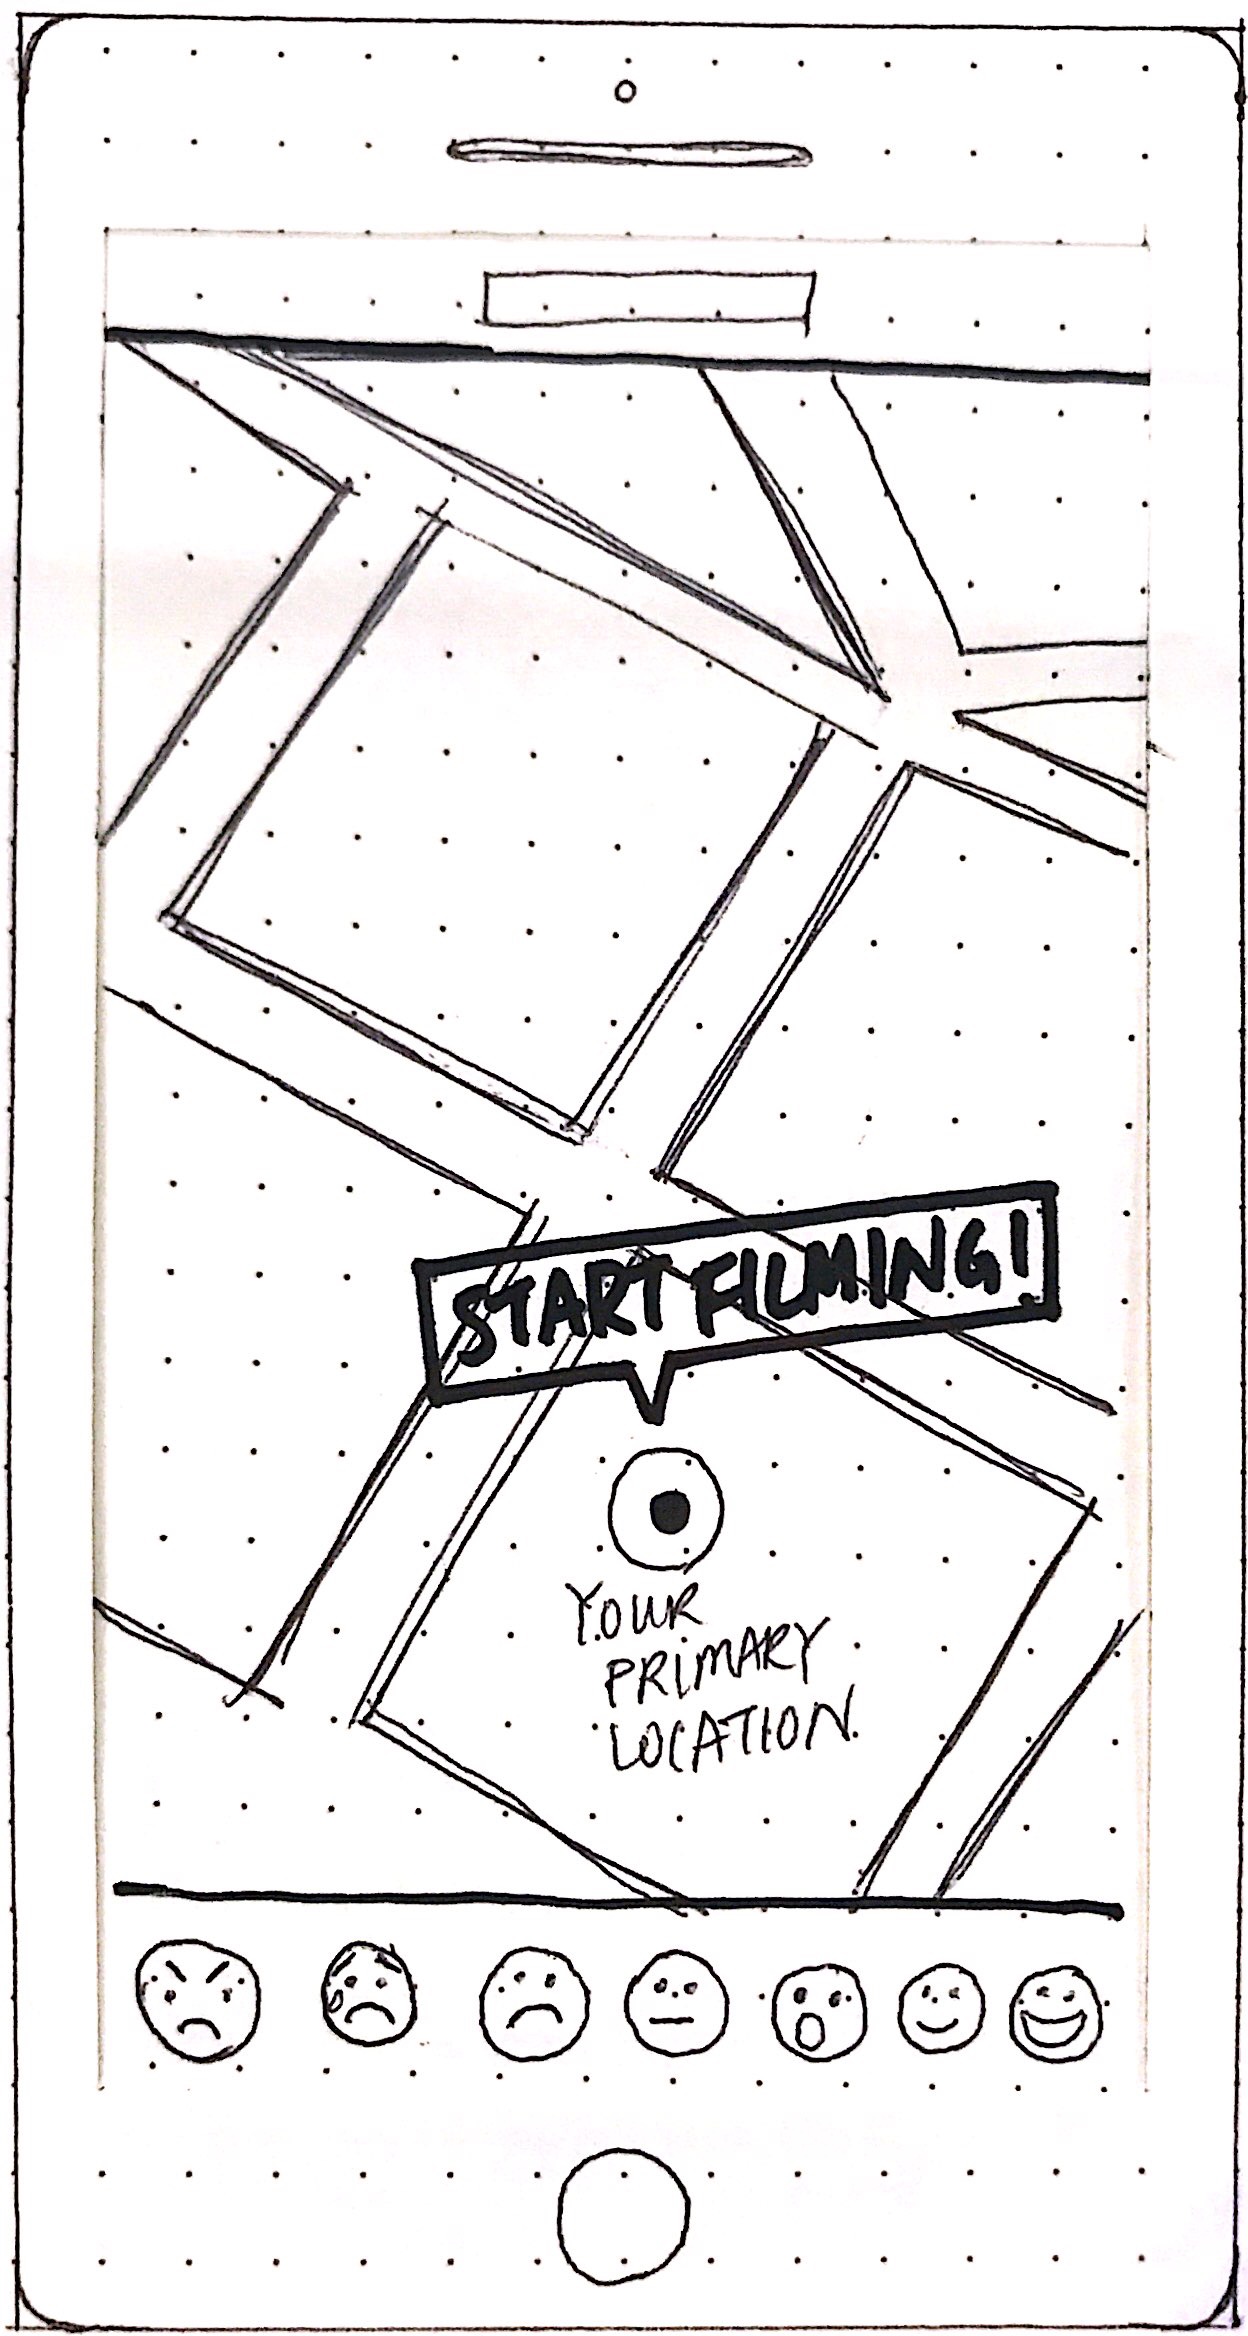 START FILMING!
YOUR
PRIMARY
LOCATION